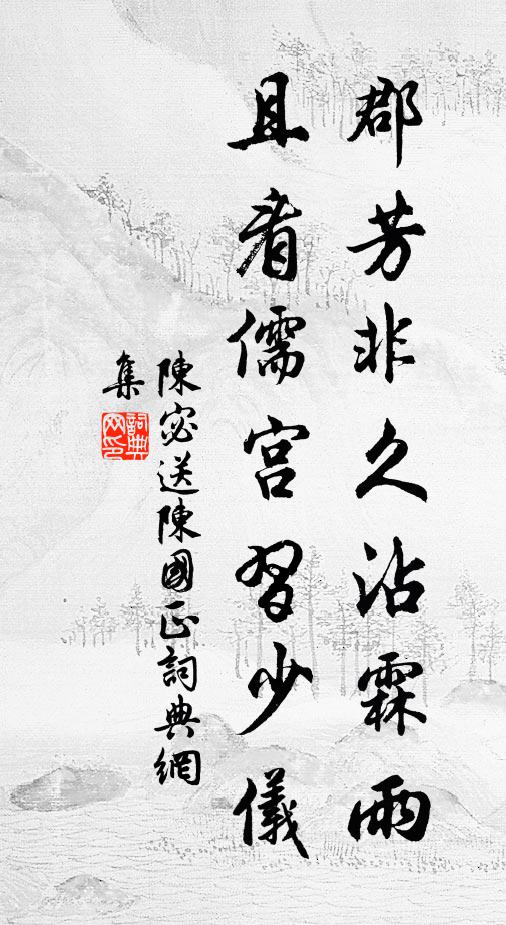 郡芳非久沾霖雨
且看儒宫習少儀
陳宓送陳國正詞典網
集
詞典网印